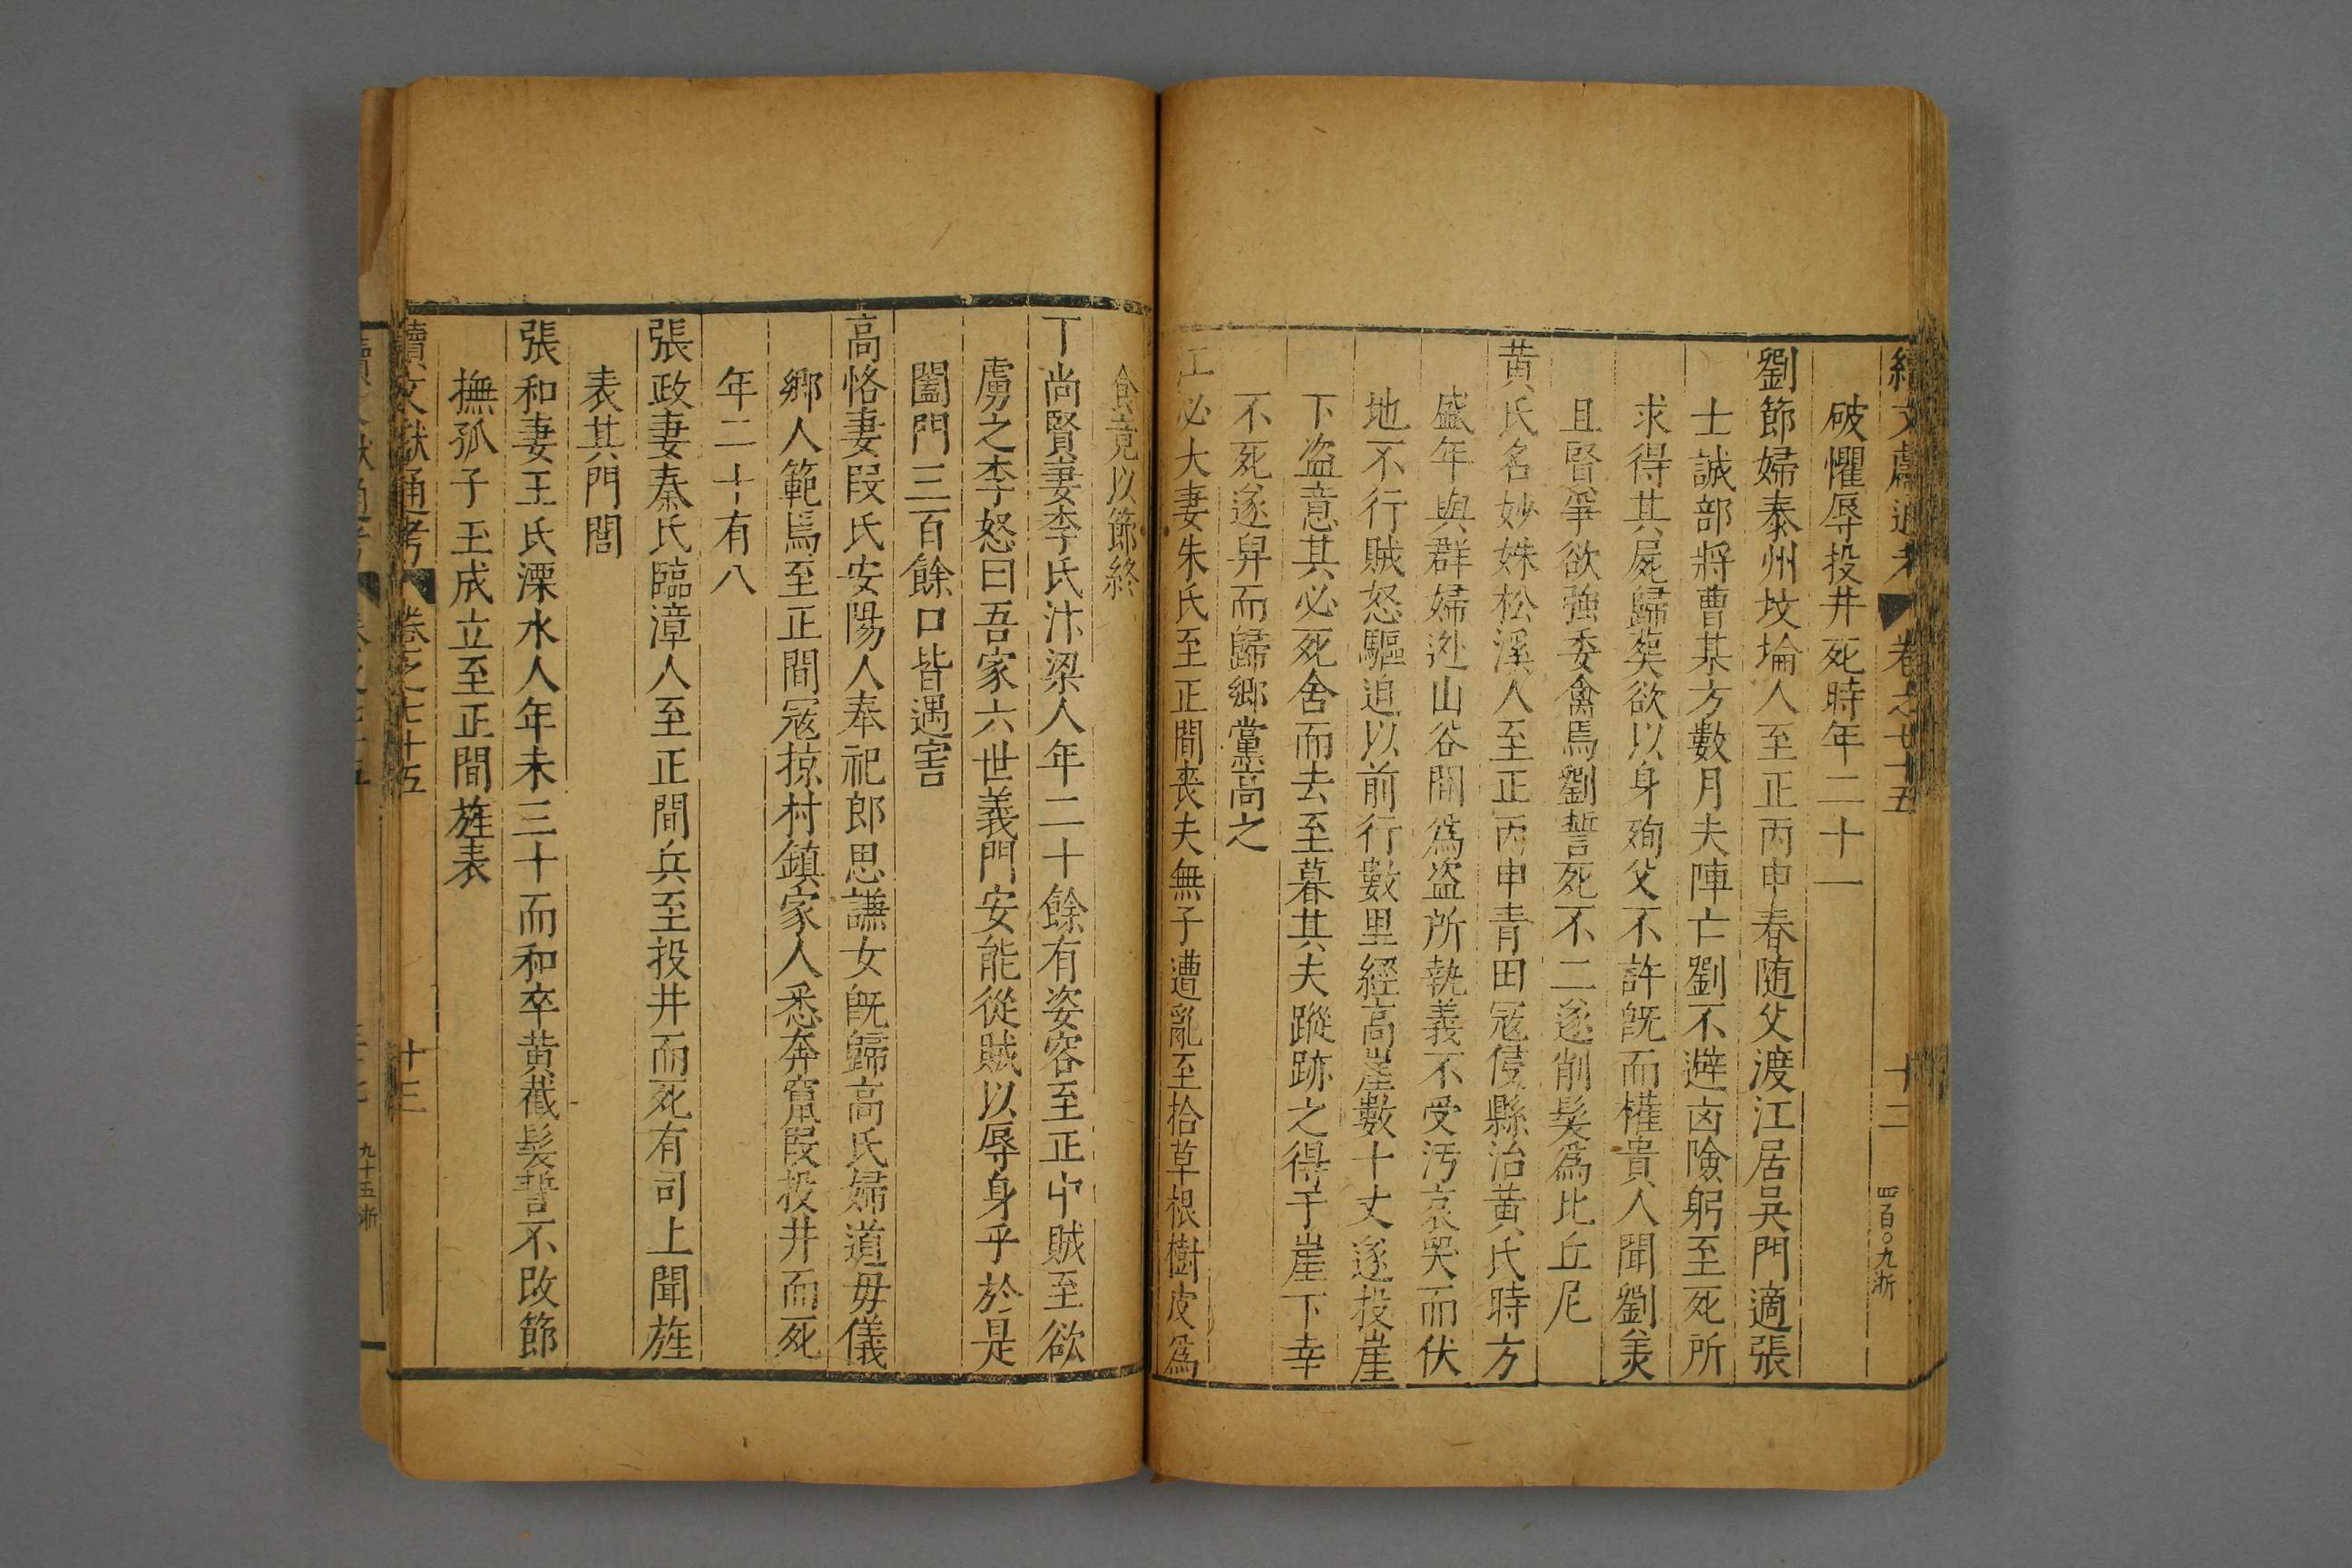 續文獻通考 卷之七十五 十二 四百〇九浙
破懼辱投井死時年二十一
劉節婦泰州坟埨人至正丙申春随父渡江居吳門適張
士誠部將曹某方數月夫陣亡劉不避㐫險躬至死所
求得其屍歸葬欲以身殉父不許旣而權貴人聞劉美
且賢爭欲強委禽焉劉誓死不二遂削髮爲比丘尼
黄氏名妙姝松溪人至正丙申青田冦侵縣治黃氏時方
盛年與群婦迯山谷間爲盗所執義不受汚哀哭而伏
地不行賊怒驅迫以前行數里經高崖數十丈遂投崖
下盗意其必死舍而去至暮其夫蹤跡之得于崖下幸
不死遂舁而歸郷黨高之
江必大妻朱氏至正間喪夫無子遭亂至拾草根樹皮爲
食竟以節終
丁尚賢妻李氏汴梁人年二十餘有姿容至正中賊至欲
虜之李怒曰吾家六世義門安能從賊以辱身乎於是
闔門三百餘口皆遇害
高恪妻段氏安陽人奉祀郎思謙女旣歸高氏婦道毋儀
郷人範焉至正間冦掠村鎮家人悉奔竄段投井而死
年二十有八
張政妻秦氏臨漳人至正間兵至投井而死有司上聞旌
表其門閭
張和妻王氏溧水人年未三十而和卒黄截髮誓不改節
撫孤子玉成立至正間旌表
續文獻通考 卷之七十五 十三
九十五浙